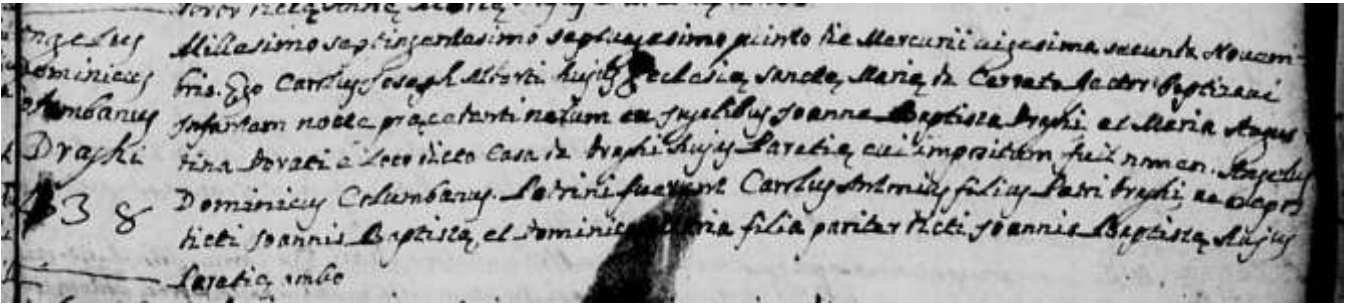 Angelus
Dominicus
Columbanus
Draghi
438
Millesimo septingentesimo septuagesimo quinto die Mercurii vigesima secunda Novem-
bris. Ego Carolus Joseph Alberti hujus Ecclesię Sanctę Marię de Cerreto Rector Baptizavi
Infantem nocte pręcedenti natum ex jugalibus Joanne Baptista Draghi et Maria Augus-
tina Dorati e loco dicto Casa de Draghi hujus Paretię cui impositum fuit nomen Angelus
Dominicus Columbanus. Patrini fuerunt Carolus Antonius filius Petri Draghi, ac
dicti Joannis Baptistę, et Dominica Maria filia pariter dicti Joannis Baptistę hujus
Paretię ambo